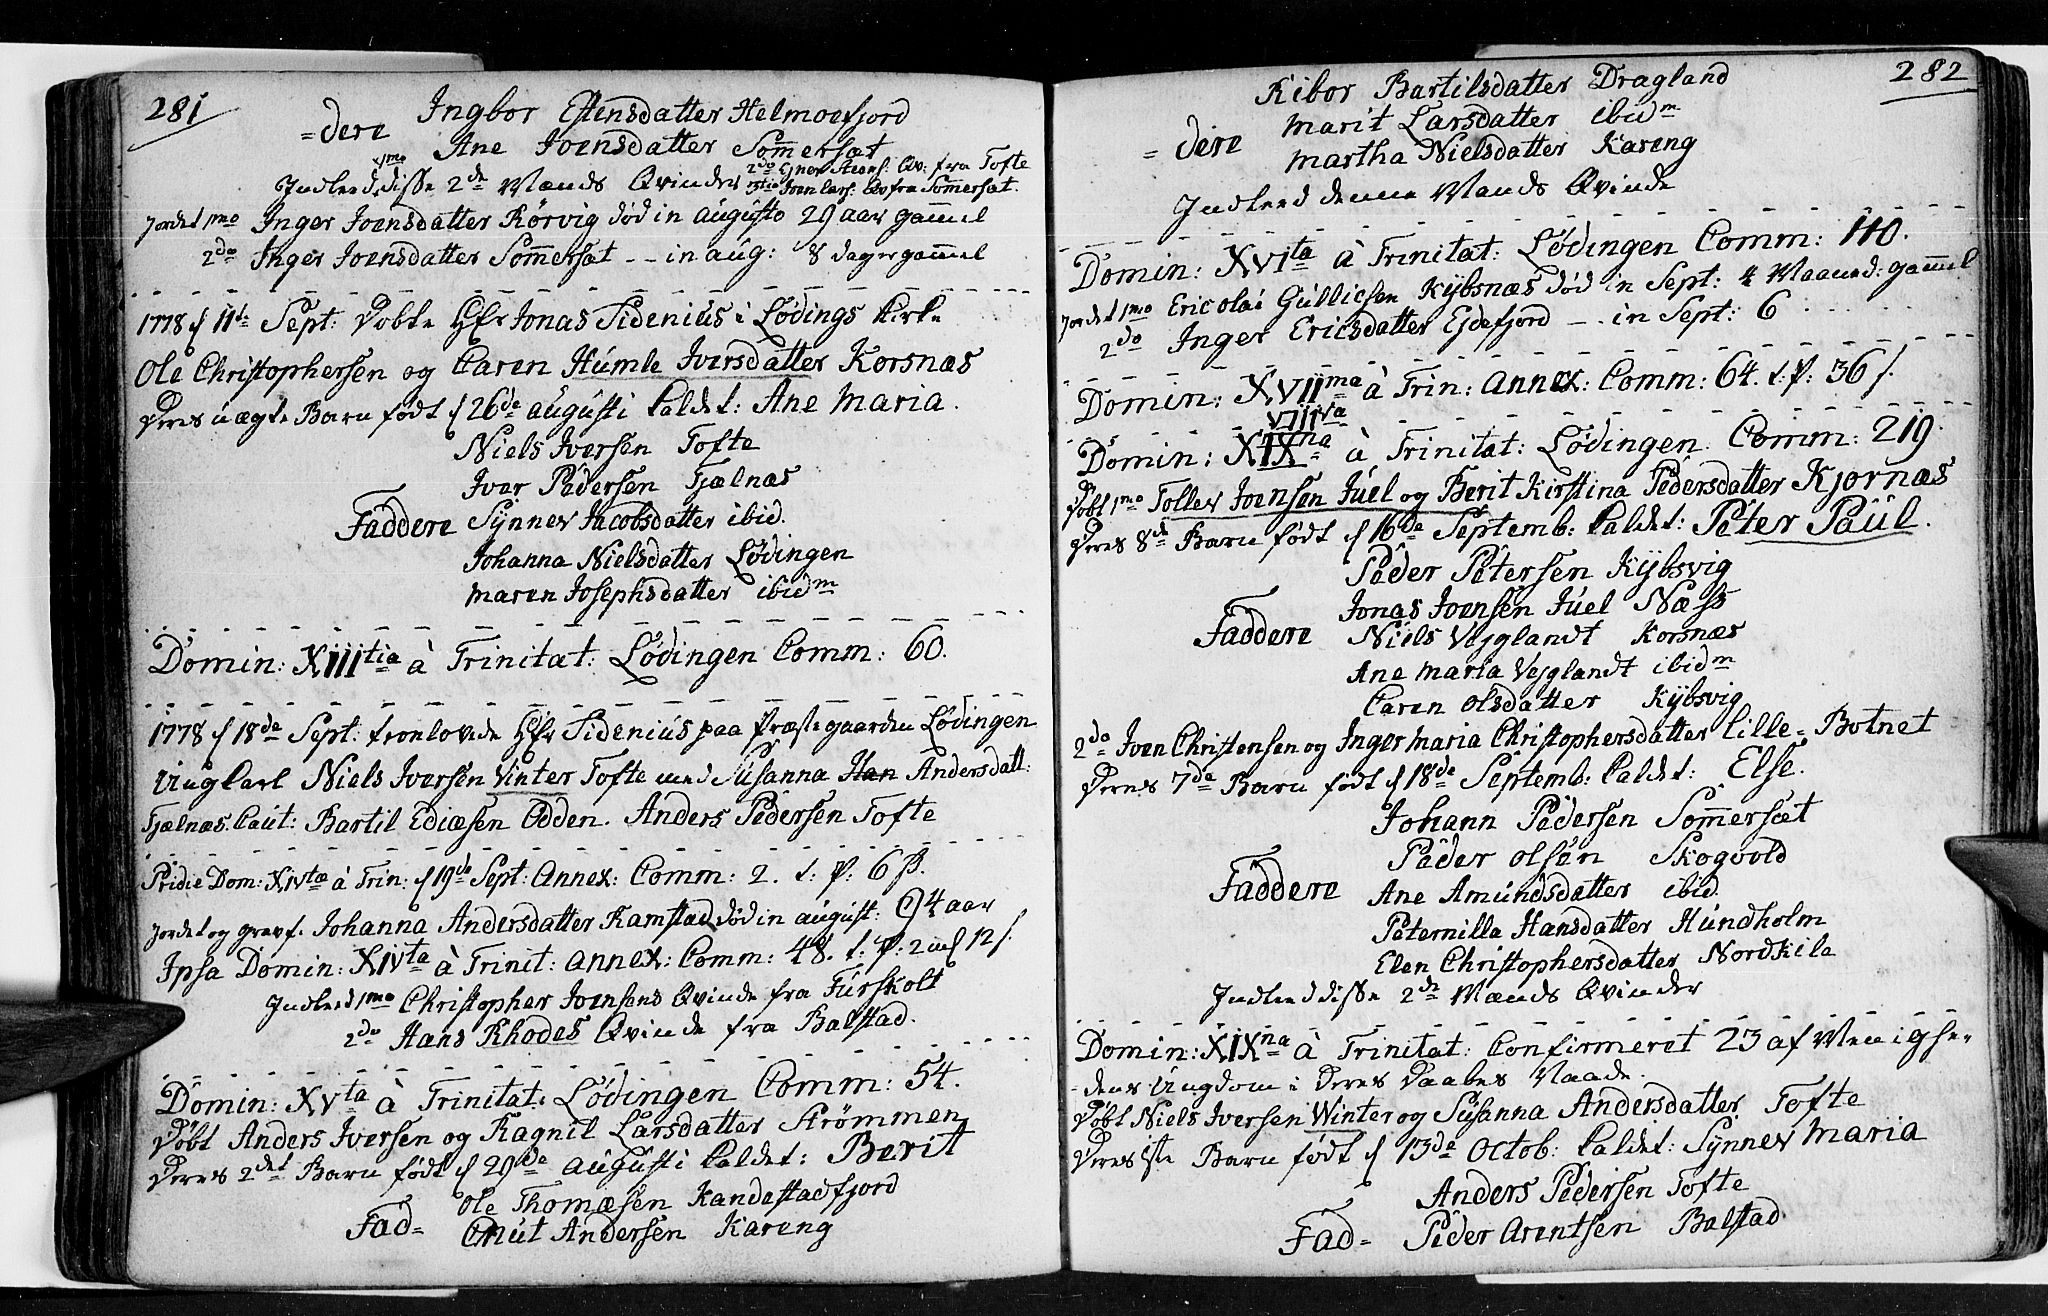 281
Ingbor Estensdatter Helmoefjord
= dere
Ane Joensdatter Sommersæt
Indleed disse 2de Mænds Qvinder 1mo 2do Ejner Steens. Qv. fra Tofte
3tio Joen Lars. Qv fra Sommersæt.
Jordet 1mo Inger Joensdatter Rörvig död in augusto 29 aar gammel
2do Inger Joensdatter Sommersæt -- in aug: 8 dager gammel
1778 d 11te Sept: Döbte Hr Jonas Sidenius i Lødings Kirke
Ole Christophersen og Caren Humle Iversdatter Korsnæs
Deres uægte Barn født d 26de augusti kaldet: Ane Maria.
Niels Iversen Tofte
Iver Pedersen Fjælnæs
Faddere Synnev Jacobsdatter ibid.
Johanna Nielsdatter Lödingen
maren Josephsdatter ibidm
Domin: XIIItia à Trinitat: Lödingen Comm: 60.
1778 d 18de Sept: troelovede Hr Sidenius paa Præstegaarden Lödingen
Ungkarl Niels Iversen Vinter Tofte med Susanna Han Andersdatt:
Fjælnæs. Caut: Bartil Ediæsen Odden. Anders Pedersen Tofte
Pridie Dom: XIVtæ à Trin: d 19de Sept: Annex: Comm: 2. t: P: 6 s.
Jordet og gravf. Johanna Andersdatter Kamstad död in august: 94 aar
Ipsa Domin: XIVta à Trinit: annex: Comm: 48. t: P: 2 md 12 s.
Indleed 1mo Christopher Joensens Qvinde fra Furskolt
2do Hans Rhodes Qvinde fra Balstad.
Domin: XVta à Trinitat: Lödingen Comm: 54.
Döbt Anders Iversen og Ragnil Larsdatter Strömmen
Deres 2det Barn født d 29de augusti kaldet: Berit
Ole Thomæsen Kandestadfjord
Fad=
Cnut Andersen Kareng
282
Ribor Bartilsdatter Dragland
= dere marit Larsdatter ibidm
martha Nielsdatter Kareng
Indleed denne Mands Qvinde
Domin: XVIta à Trinitat: Lödingen Comm: 110.
Jordet 1mo Eric olai Gullicsen Kybsnæs död in Sept: 4 Maaned: gammel
2do Inger Ericsdatter Ejdefjord -- in Sept: 6 . . . .
Domin: XVIIma à Trin: annex: Comm: 64. t: P: 36 s.
VIIIva
Domin: XIXna à Trinitat: Lödingen Comm: 219.
Döbt 1mo Tollev Joensen Juel og Berit Kirstina Pedersdatter Kjornæs
Deres 8de Barn født d 16de Septemb: kaldet: Peter Paul.
Peder Petersen Kybsvig
Jonas Joensen Juel Næss
Faddere Niels Vejglandt Korsnæs
Ane maria Vejglandt ibidm
Caren olsdatter Kybsvig
2do Joen Christensen og Inger maria Christophersdatter Lille=Botnet
Deres 7de Barn født d 18de Septemb: kaldet: Else.
Johann Pedersen Sommersæt
Peder olsøn Skogvold
Faddere Ane Amundsdatter ibid.
Peternilla Hansdatter Hundholm
Elen Christophersdatter Nordkile
Indleed disse 2de Mænds Qvinder
Domin: XIXna à Trinitat: Confirmeret 23 af Menighe-
dens Ungdom i Deres Daabes Naade.
Döbt Niels Iversen Winter og Susanna Andersdatter Tofte
Deres 1ste Barn født d 13de Octob: kaldet: Synnev Maria
Anders Pedersen Tofte
Fad= Peder Arentsen Balstad